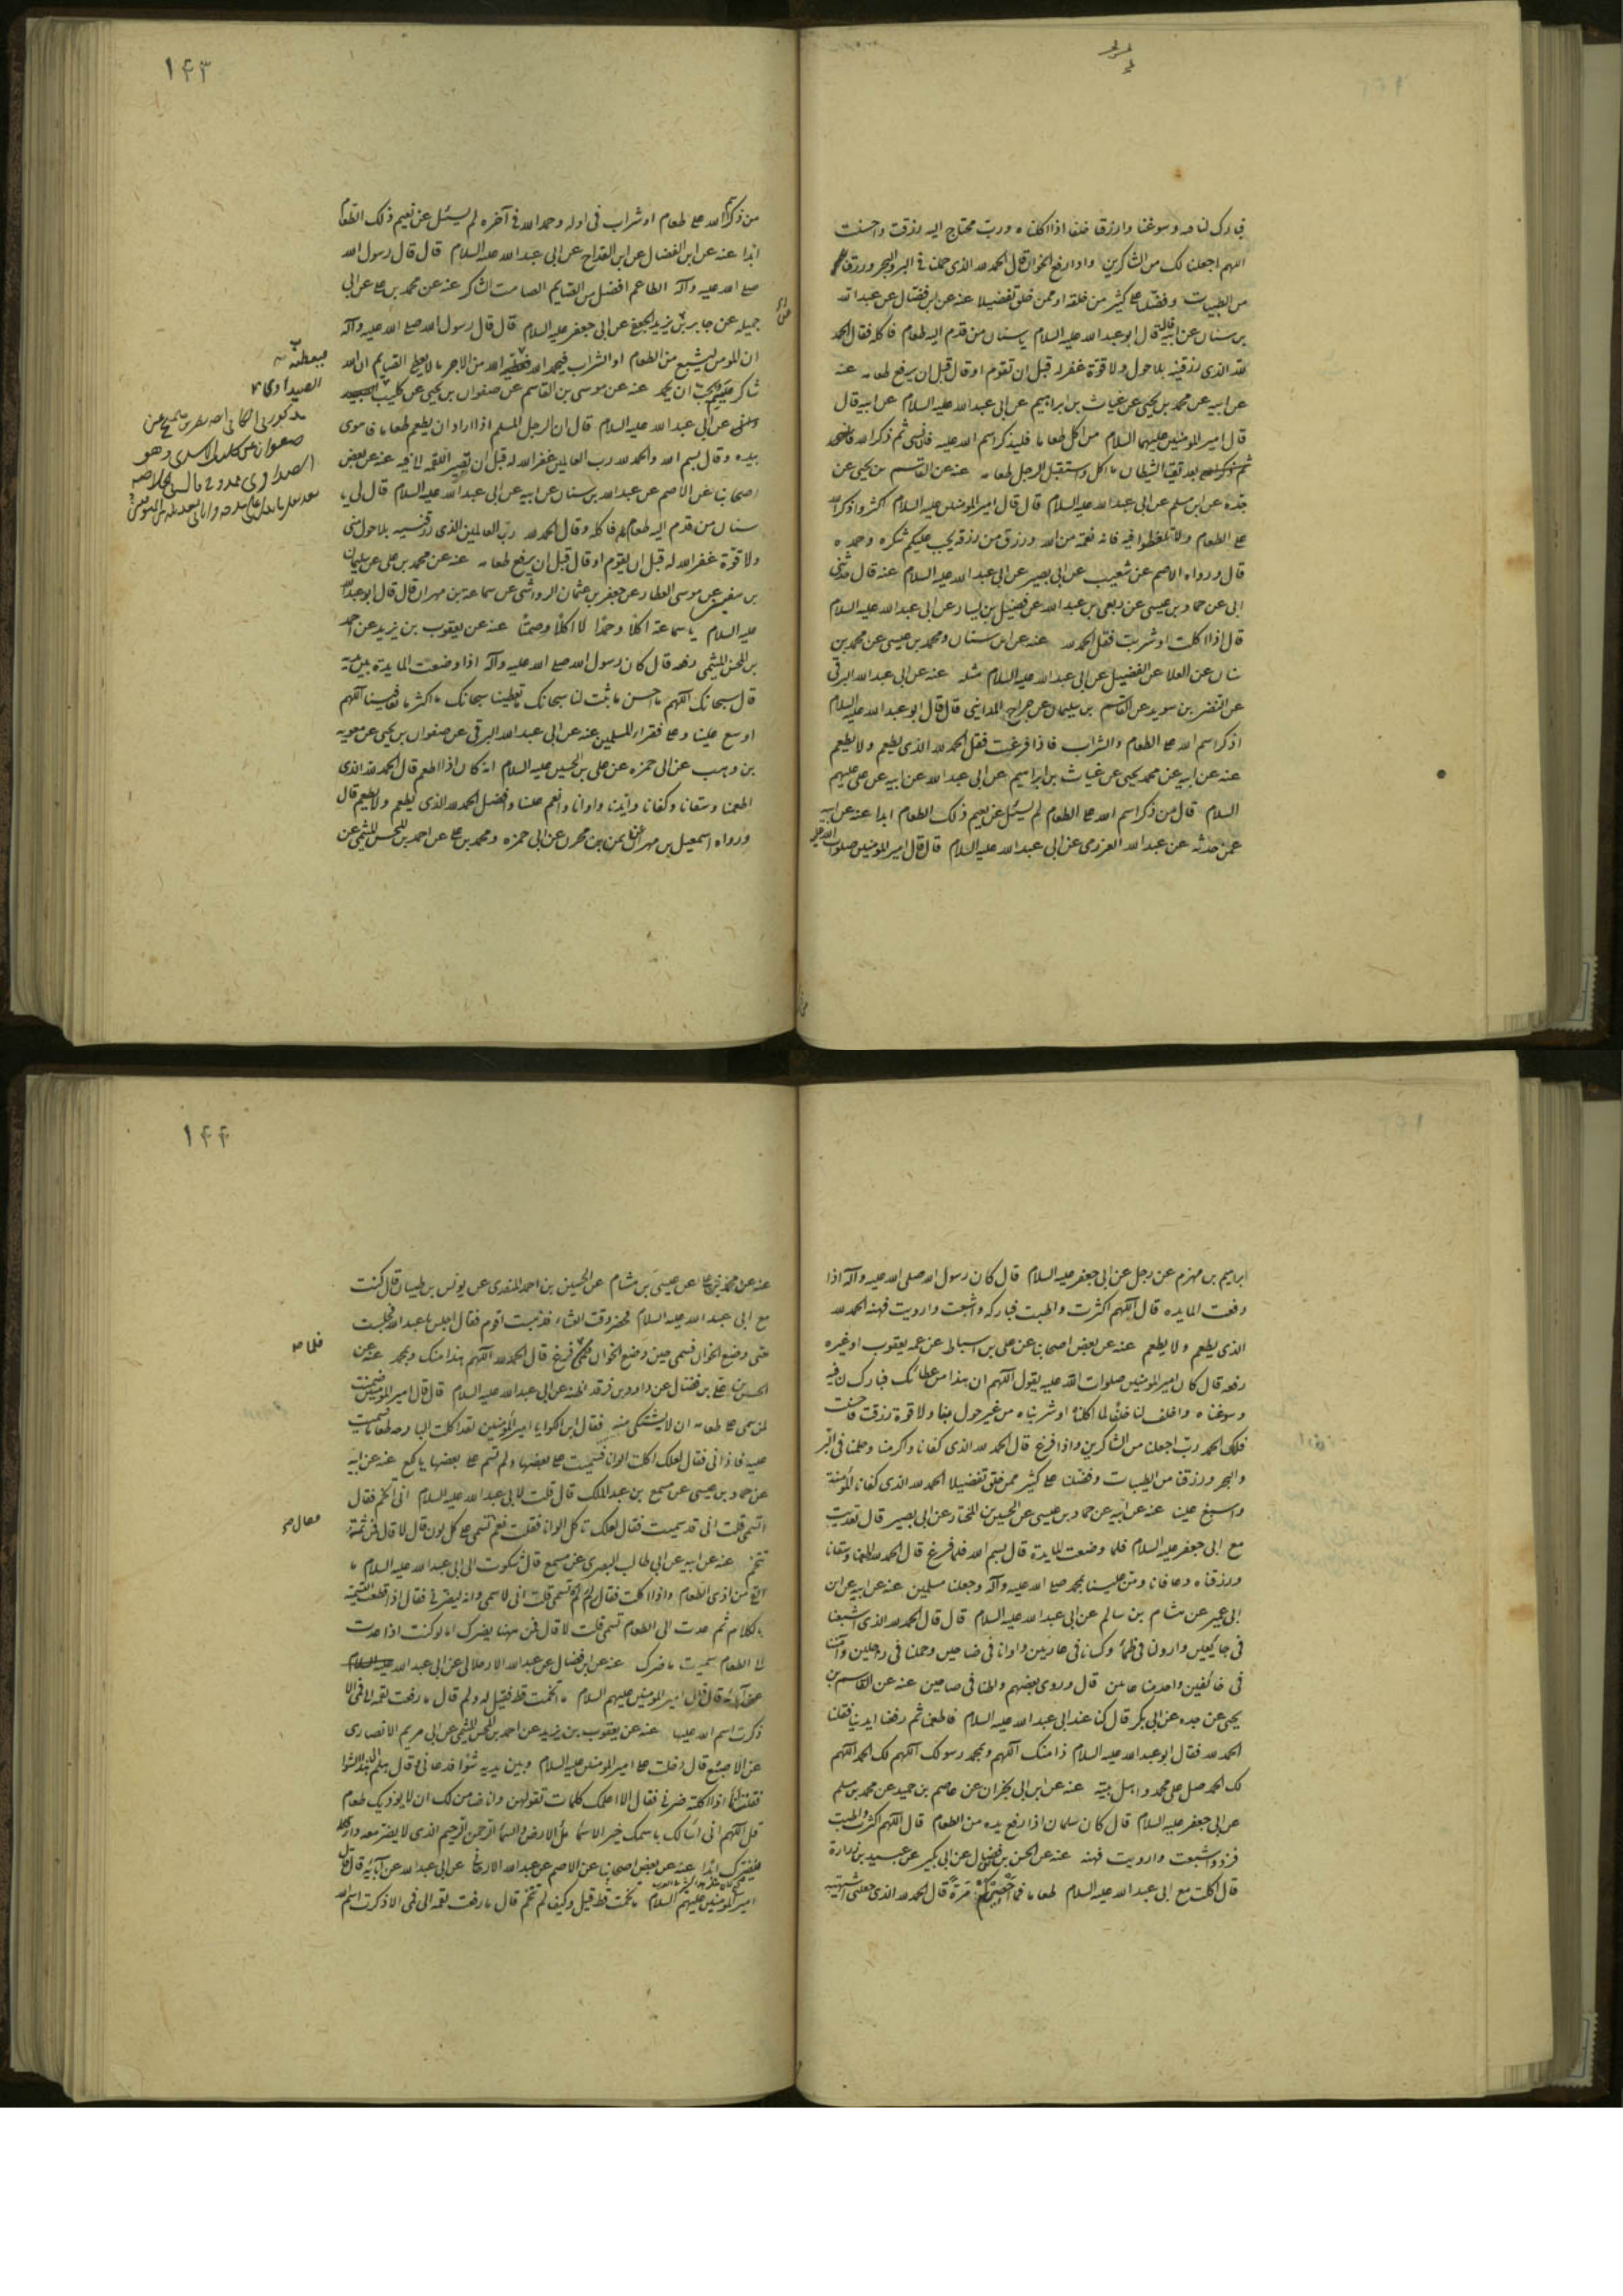 فبارك لنا فيه وسوغنا وارزقنا خلفا اذا اكلناه وربّ محتاج اليه رزقت واحسنت
اللهم اجعلنا لك من الشاكرين واذا رفع الخوان قال الحمد لله الذى حملنا فى البر والبحر ورزقنا
من الطيبات وفضلنا على كثير من خلقه او ممن خلق تفضيلا عنه عن ابن فضال عن عبدالله
بن سنان عن ابيه قال قال ابو عبدالله عليه السلام يا سنان من قدم اليه طعام فاكله فقال الحمد
لله الذى رزقنيه بلا حول ولا قوة غفر له قبل ان تقوم او قال قبل ان يرفع طعامه عنه
عن ابيه عن محمد بن يحيى عن غياث بن ابراهيم عن ابى عبدالله عليه السلام عن ابيه قال
قال امير المؤمنين عليهما السلام من اكل طعاما فليذكر اسم الله عليه فان نسى ثم ذكر الله
بعد تقيا الشيطان ما اكل واستقبل الرجل طعامه عنه عن القاسم بن يحيى عن
جده عن ابن مسلم عن ابى عبدالله عليه السلام قال قال امير المؤمنين عليه السلام اكثروا ذكر الله
على الطعام ولا تلغطوا فيه فانه نعمة من الله ورزق من رزقه يجب عليكم شكره وحمده
قال ورواه الاصم عن شعيب عن ابى بصير عن ابى عبدالله عليه السلام عنه قال حدثنى
ابى عن حماد بن عيسى عن ربعى بن عبدالله عن فضيل بن يسار عن ابى عبدالله عليه السلام
قال اذا اكلت او شربت فقل الحمد لله عنه عن ابن سنان ومحمد بن عيسى عن محمد بن
سنان عن العلا عن الفضيل عن ابى عبدالله عليه السلام مثله عنه عن ابى عبدالله البرقى
عن النضر بن سويد عن القاسم بن سليمان عن جراح المداينى قال قال ابو عبدالله عليه السلام
اذكر اسم الله على الطعام والشراب فاذا فرغت فقل الحمد لله الذى يطعم ولا يطعم
عنه عن ابيه عن محمد بن يحيى عن غياث بن ابراهيم عن ابى عبدالله عن ابيه عن على عليهم
السلام قال من ذكر اسم الله على الطعام لم يسئل عن نعيم ذلك الطعام ابدا عنه عن ابيه
عمن حدثه عن عبدالله العزرمى عن ابى عبدالله عليه السلام قال قال امير المؤمنين صلوات الله عليه
١٤٣
من ذكر اسم الله على طعام او شراب فى اوله وحمد الله فى آخره لم يسئل عن نعيم ذلك الطعام
ابدا عنه عن ابن الفضال عن ابن القداح عن ابى عبدالله عليه السلام قال قال رسول الله
صلى الله عليه وآله الطاعم افضل من الصايم الصامت الشاكر عنه عن محمد بن على عن ابى
جميله عن جابر بن يزيد الجعفى عن ابى جعفر عليه السلام قال قال رسول الله صلى الله عليه وآله
ان المؤمن ليشبع من الطعام او الشراب فيحمد الله فيعطيه الله من الاجر ما لا يعطى الصايم ان الله
شاكر يحب ان يحمد عنه عن موسى بن القاسم عن صفوان بن يحيى عن كليب
عن ابى عبدالله عليه السلام قال ان الرجل المسلم اذا اراد ان يطعم طعاما فاهوى
بيده وقال بسم الله والحمد لله رب العالمين غفر الله له قبل ان تصير اللقمة الى فيه عنه عن بعض
اصحابنا عن الاصم عن عبدالله بن سنان عن ابيه عن ابى عبدالله عليه السلام قال لى يا
سنان من قدم اليه طعام فاكله وقال الحمد لله رب العالمين الذى رزقنيه بلا حول منى
ولا قوة غفر الله له قبل ان يقوم او قال قبل ان يرفع طعامه عنه عن محمد بن على عن سليمان
بن سفين عن موسى العطار عن جعفر بن عثمان الرواسى عن سماعة بن مهران قال قال ابو عبدالله
عليه السلام يا سماعة اكلا وحمدا لا اكلا وصمتا عنه عن يعقوب بن يزيد عن احمد
بن الحسن الميثمى رفعه قال كان رسول الله صلى الله عليه وآله اذا وضعت المايدة بين يديه
قال سبحانك اللهم ما احسن ما تبتلينا سبحانك ما اكثر ما تعطينا سبحانك ما اكثر ما تعافينا اللهم
اوسع علينا وعلى فقراء المسلمين عنه عن ابى عبدالله البرقى عن صفوان بن يحيى عن معوية
بن وهب عن ابى حمزه عن على بن الحسين عليه السلام انه كان اذا طعم قال الحمد لله الذى
اطعمنا وسقانا وكفانا وايدنا واوانا وانعم علينا وافضل الحمد لله الذى يطعم ولا يطعم قال
ورواه اسمعيل بن مهران عن ايمن بن محرز عن ابى حمزه ومحمد بن على عن احمد بن الحسن الميثمى عن
فيعطيه
الصيداوى
ابراهيم بن مهزم عن رجل عن ابى جعفر عليه السلام قال كان رسول الله صلى الله عليه وآله اذا
رفعت المايده قال اللهم اكثرت واطبت فباركه واشبعت وارويت فهنه الحمد لله
الذى يطعم ولا يطعم عنه عن بعض اصحابنا عن على بن اسباط عن عمه يعقوب او غيره
رفعه قال كان امير المؤمنين صلوات الله عليه يقول اللهم ان هذا من عطائك فبارك لنا فيه
وسوغناه واخلف لنا خلفا لما اكلناه او شربناه من غير حول منا ولا قوة رزقت فاحسنت
فلك الحمد رب اجعلنا من الشاكرين واذا فرغ قال الحمد لله الذى كفانا واكرمنا وحملنا فى البر
والبحر ورزقنا من الطيبات وفضلنا على كثير ممن خلق تفضيلا الحمد لله الذى كفانا المؤنة
واسبغ علينا عنه عن ابيه عن حماد بن عيسى عن الحسين بن المختار عن ابى بصير قال تغديت
مع ابى جعفر عليه السلام فلما وضعت المايدة قال بسم الله فلما فرغ قال الحمد لله الذى اطعمنا وسقانا
ورزقناه وعافانا ومن علينا بمحمد صلى الله عليه وآله وجعلنا مسلمين عنه عن ابيه عن ابن
ابى عمير عن هشام بن سالم عن ابى عبدالله عليه السلام قال قال الحمد لله الذى اشبعنا
فى جائعين واروانا فى ظمآء وكسانا فى عاريين واوانا فى ضاحين وحملنا فى راجلين وآمننا
فى خائفين واخدمنا فى عانين قال وروى بعضهم واظلنا فى ضاحين عنه عن القاسم بن
يحيى عن جده عن ابى بكر قال كنا عند ابى عبدالله عليه السلام فاطعمنا ثم رفعنا ايدينا فقلنا
الحمد لله فقال ابو عبدالله عليه السلام ذا منك اللهم وبمحمد رسولك اللهم لك الحمد اللهم
لك الحمد صل على محمد واهل بيته عنه عن ابن ابى نجران عن عاصم بن حميد عن محمد بن مسلم
عن ابى جعفر عليه السلام قال كان سلمان اذا رفع يده من الطعام قال اللهم اكثرت واطبت
فزد واشبعت وارويت فهنه عنه عن الحسن بن فضال عن ابى بكير عن عبيد بن زرارة
قال اكلت مع ابى عبدالله عليه السلام طعاما فما احصى كم مرة قال الحمد لله الذى جعلنى اشتهيه
١٤٤
عنه عن محمد بن على عن عيسى بن هشام عن الحسين بن احمد المنقرى عن يونس بن ظبيان قال كنت
مع ابى عبدالله عليه السلام فحضر وقت العشاء فذهبت اقوم فقال اجلس يا عبدالله فجلست
حتى وضع الخوان فسمى حين وضع الخوان فلما فرغ قال الحمد لله اللهم هذا منك وبمحمد عنه عن
الحسن بن على بن فضال عن داود بن فرقد عن ابى عبدالله عليه السلام قال قال امير المؤمنين ضمنت
لمن سمى على طعامه ان لا يشتكى منه فقال ابن الكوا يا امير المؤمنين لقد اكلت البارحه طعاما سميت
عليه فاذانى فقال لعلك اكلت الوانا فسميت على بعضها ولم تسم على بعضها يا لكع عنه عن ابيه
عن حماد بن عيسى عن مسمع بن عبد الملك قال قلت لابى عبدالله عليه السلام انى اتخم فقال
اتسمى قلت انى قد سميت فقال لعلك تاكل الوانا فقلت نعم تسمى على كل لون قال لا قال فمن ثمة
تتخم عنه عن ابيه عن ابى طالب البصرى عن مسمع قال شكوت الى ابى عبدالله عليه السلام ما
القى من اذى الطعام واذا اكلت فقال لم لم تسمى قلت انى لاسمى وانه ليضرنى فقال اذا قطعت التسمية
بالكلام ثم عدت الى الطعام تسمى قلت لا قال فمن ههنا يضرك اما لو كنت اذا عدت
الى الطعام سميت ما ضرك عنه عن ابن فضال عن عبدالله الارجانى عن ابى عبدالله
عن آبائه قال قال امير المؤمنين عليهم السلام ما اتخمت قط فقيل له ولم قال ما رفعت لقمة الى فمى الا
ذكرت اسم الله عليها عنه عن يعقوب بن يزيد عن احمد بن الحسن الميثمى عن ابى مريم الانصارى
عن الاصبغ قال دخلت على امير المؤمنين عليه السلام وبين يديه شوا فدعانى وقال هلم الى هذا الشوا
فقلت انا اذا اكلته ضرنى فقال الا اعلمك كلمات تقولهن وانا ضامن لك ان لا يوذيك طعام
قل اللهم انى اسالك باسمك خير الاسماء ملأ الارض والسماء الرحمن الرحيم الذى لا يضر معه داء
فلا يضرك ابدا عنه عن بعض اصحابنا عن الاصم عن عبدالله الارجانى عن ابى عبدالله عن آبائه قال قال
امير المؤمنين عليهم السلام ما تخمت قط قيل وكيف لم تتخم قال ما رفعت لقمة الى فمى الا ذكرت اسم الله
فلما